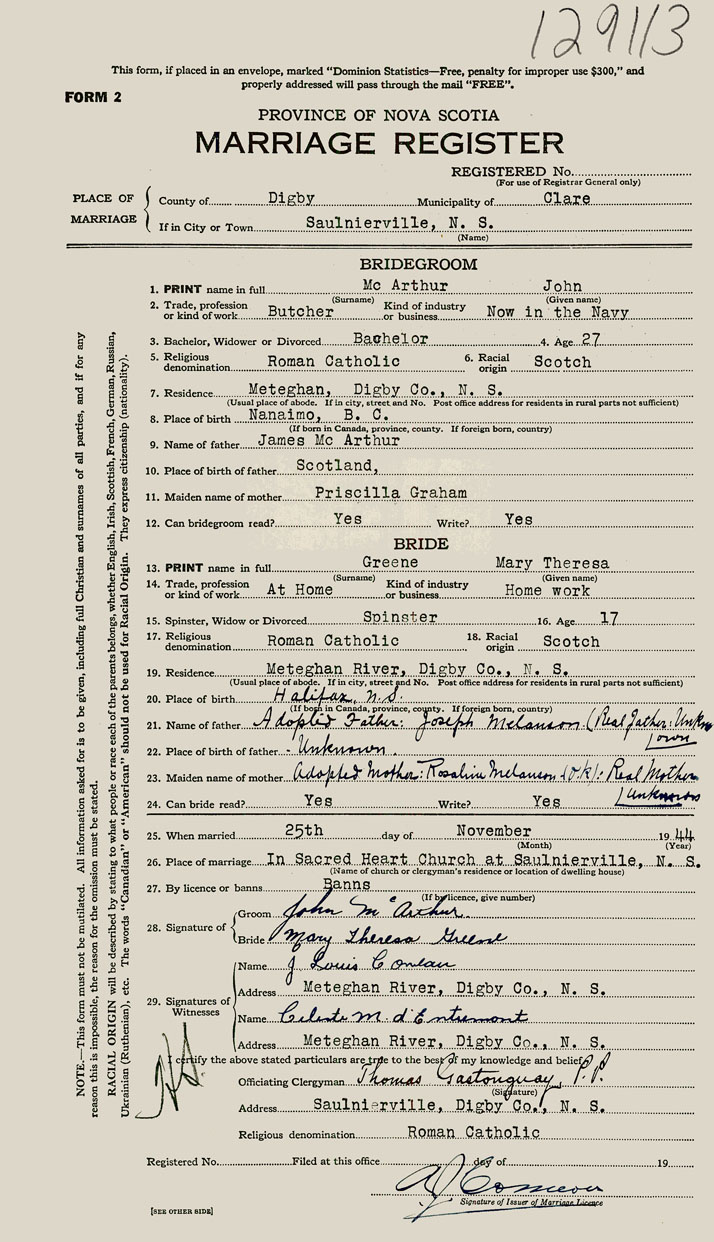 129113
This form, if placed in an envelope, marked “Dominion Statistics—Free, penalty for improper use $300,” and
properly addressed will pass through the mail “FREE”.
FORM 2
PROVINCE OF NOVA SCOTIA
MARRIAGE REGISTER
REGISTERED No.
(For use of Registrar General only)
PLACE OF MARRIAGE
County of Digby Municipality of Clare
If in City or Town Saulnierville, N. S.
(Name)
BRIDEGROOM
1. PRINT name in full Mc Arthur John
(Surname) (Given name)
2. Trade, profession or kind of work Butcher Kind of industry or business Now in the Navy
3. Bachelor, Widower or Divorced Bachelor 4. Age 27
5. Religious denomination Roman Catholic 6. Racial origin Scotch
7. Residence Meteghan, Digby Co., N. S.
(Usual place of abode. If in city, street and No. Post office address for residents in rural parts not sufficient)
8. Place of birth Nanaimo, B. C.
(If born in Canada, province, county. If foreign born, country)
9. Name of father James Mc Arthur
10. Place of birth of father Scotland,
11. Maiden name of mother Priscilla Graham
12. Can bridegroom read? Yes Write? Yes
BRIDE
13. PRINT name in full Greene Mary Theresa
(Surname) (Given name)
14. Trade, profession or kind of work At Home Kind of industry or business Home work
15. Spinster, Widow or Divorced Spinster 16. Age 17
17. Religious denomination Roman Catholic 18. Racial origin Scotch
19. Residence Meteghan River, Digby Co., N. S.
(Usual place of abode. If in city, street and No. Post office address for residents in rural parts not sufficient)
20. Place of birth Halifax, N.S.
(If born in Canada, province, county. If foreign born, country)
21. Name of father Adopted Father: Joseph Melanson (Real Father: Unknown
22. Place of birth of father - Unknown.
23. Maiden name of mother Adopted Mother: Rosaline Melanson (O.K): Real Mother
Unknown
24. Can bride read? Yes Write? Yes
25. When married 25th day of November 1944
(Month) (Year)
26. Place of marriage In Sacred Heart Church at Saulnierville, N. S.
(Name of church or clergyman's residence or location of dwelling house)
27. By licence or banns Banns
(If by licence, give number)
28. Signature of
Groom John McArthur
Bride Mary Theresa Greene
29. Signatures of Witnesses
Name J Louis Comeau
Address Meteghan River, Digby Co., N. S.
Name Celeste M. d'Entremont
Address Meteghan River, Digby Co., N. S.
I certify the above stated particulars are true to the best of my knowledge and belief.
Officiating Clergyman Thomas Gastonguay P.P.
(Signature)
Address Saulnierville, Digby Co., N. S.
Religious denomination Roman Catholic
Registered No. Filed at this office day of 19
Comeau
Signature of Issuer of Marriage Licence
[SEE OTHER SIDE]
NOTE.—This form must not be mutilated. All information asked for is to be given, including full Christian and surnames of all parties, and if for any
reason this is impossible, the reason for the omission must be stated.
RACIAL ORIGIN will be described by stating to what people or race each of the parents belongs, whether English, Irish, Scottish, French, German, Russian,
Ukrainian (Ruthenian), etc. The words “Canadian” or “American” should not be used for Racial Origin. They express citizenship (nationality).